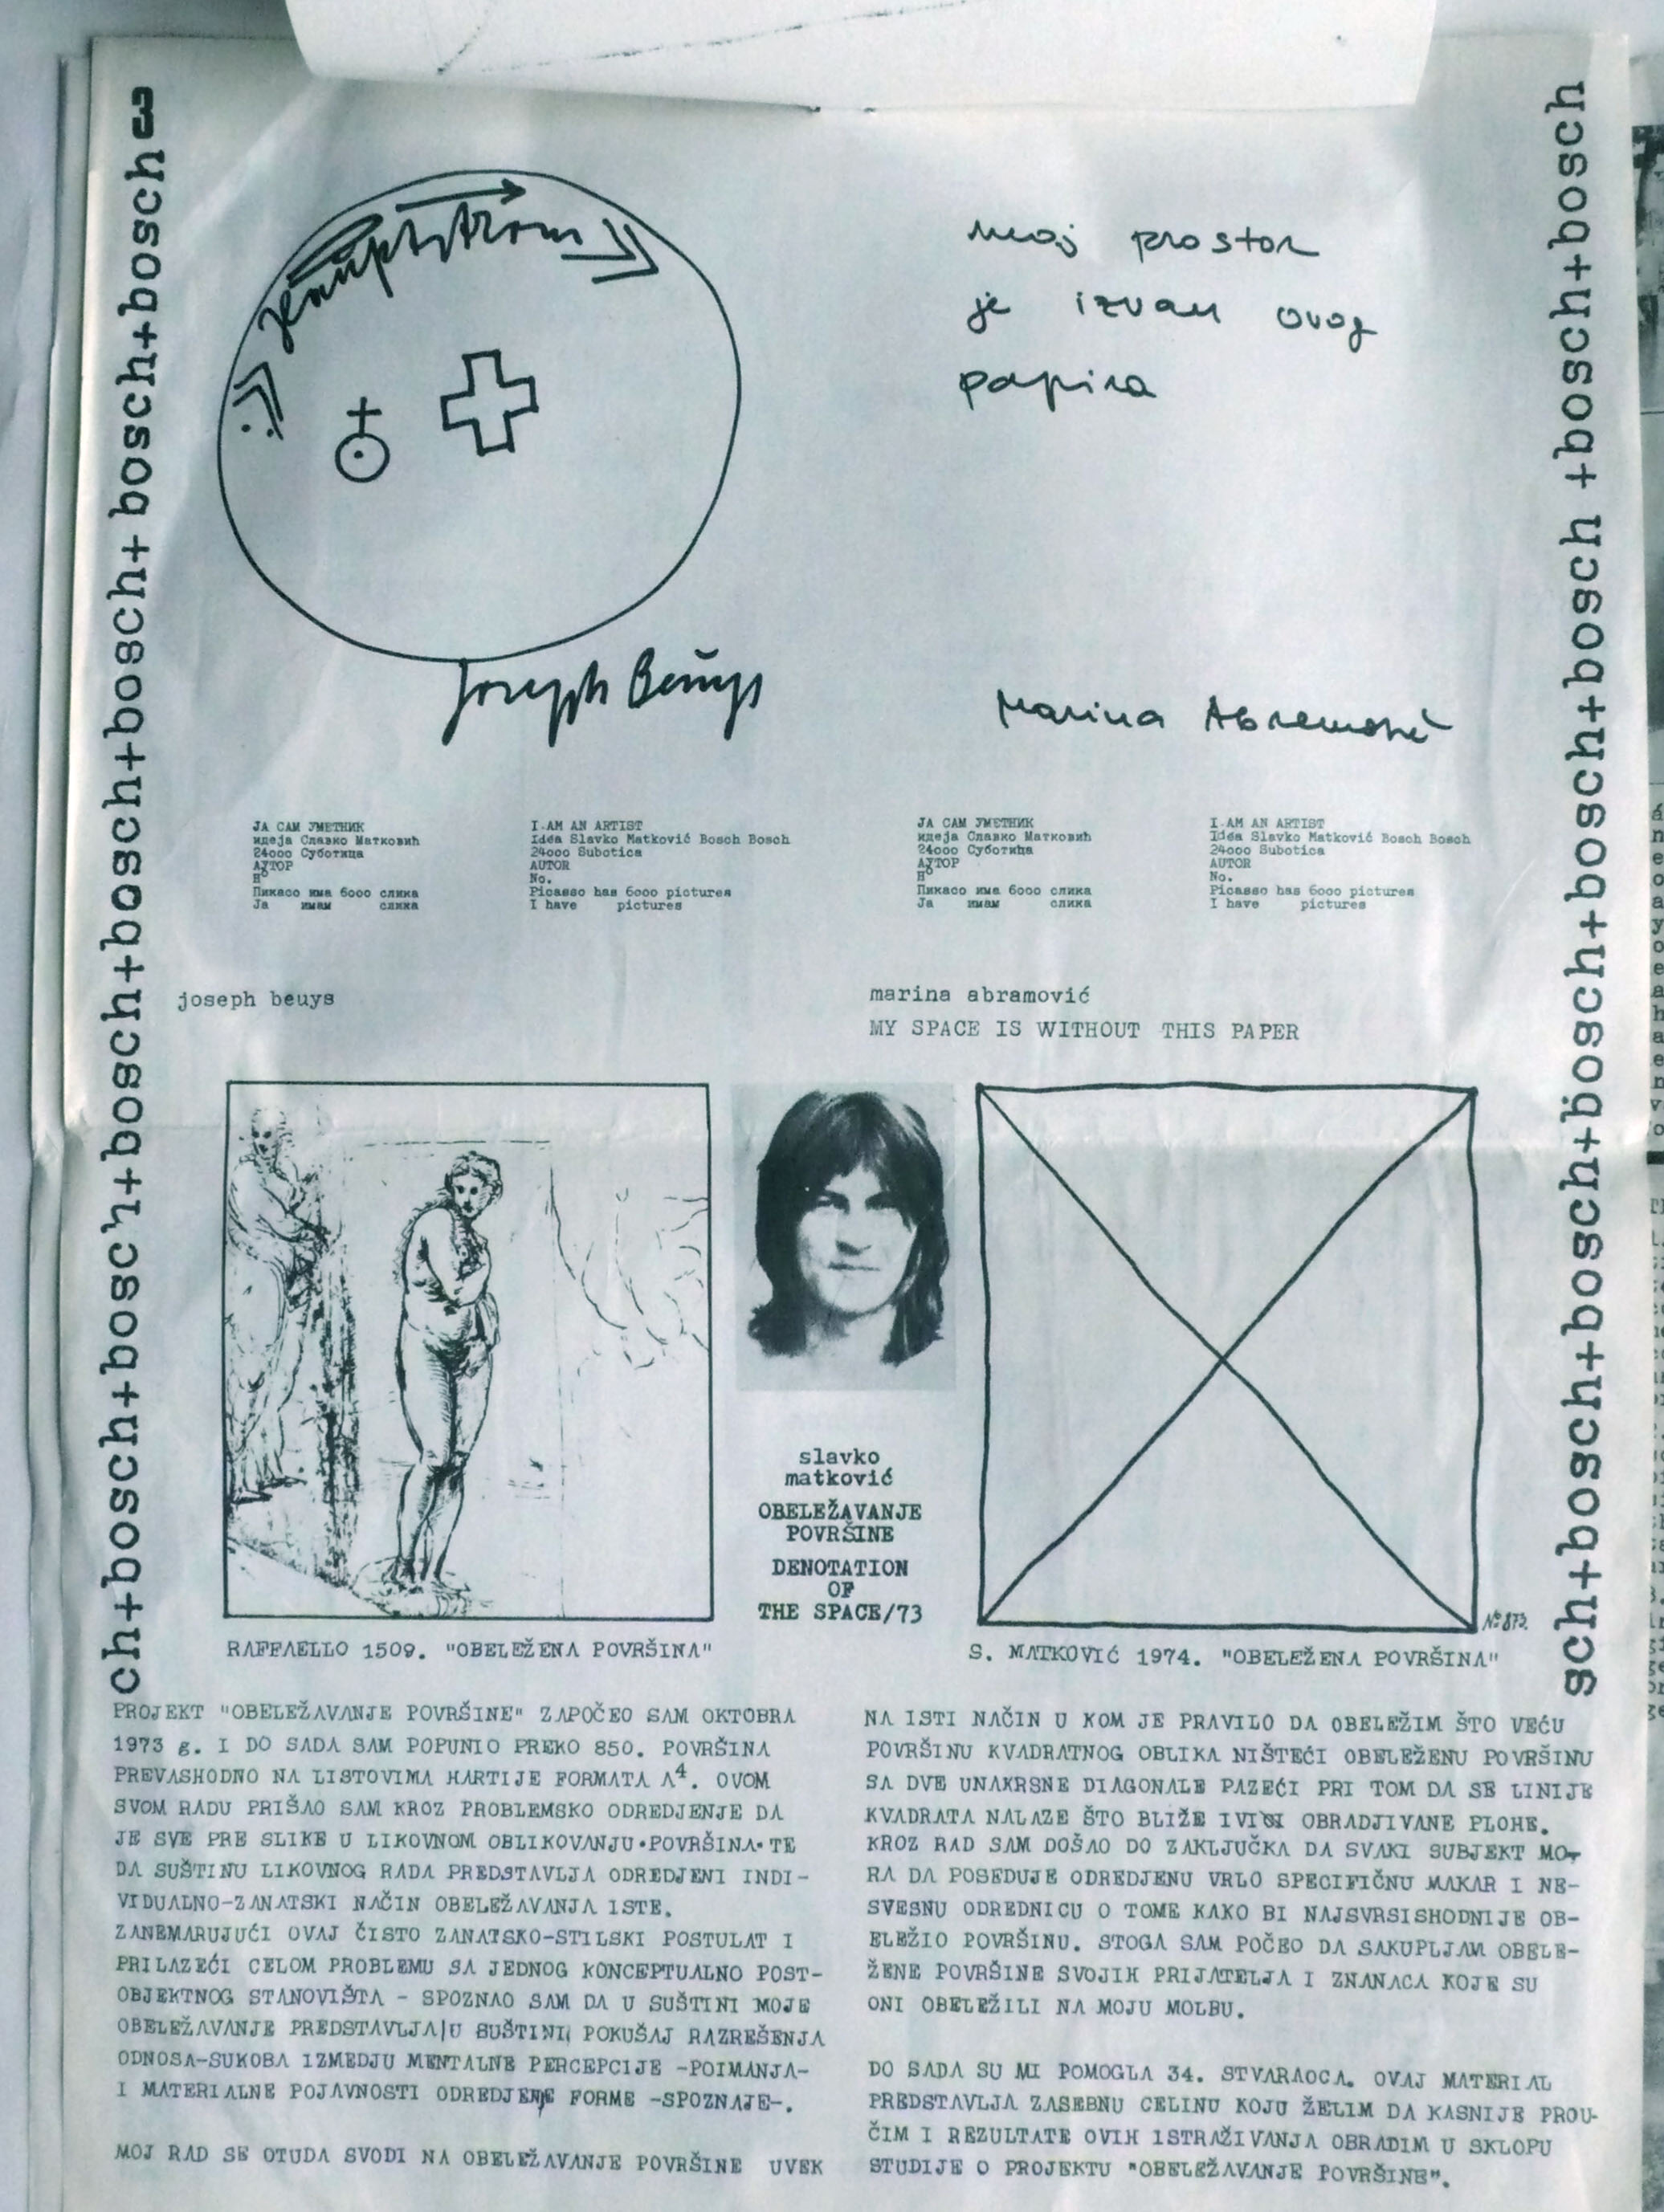 ch+bosch+bosch+bosch+bosch+bosch+bosch+bosch+bosch+bosch 3
hauptstrom
Joseph Beuys
moj prostor
je izvan ovog
papira
Marina Abramović
ЈА САМ УМЕТНИК
идеја Славко Матковић
24000 Суботица
АУТОР
Но
Пикасо има 6000 слика
Ја имам слика
I AM AN ARTIST
Idea Slavko Matković Bosch Bosch
24000 Subotica
AUTOR
No.
Picasso has 6000 pictures
I have pictures
ЈА САМ УМЕТНИК
идеја Славко Матковић
24000 Суботица
АУТОР
Но
Пикасо има 6000 слика
Ја имам слика
I AM AN ARTIST
Idea Slavko Matković Bosch Bosch
24000 Subotica
AUTOR
No.
Picasso has 6000 pictures
I have pictures
joseph beuys
marina abramović
MY SPACE IS WITHOUT THIS PAPER
slavko
matković
OBELEŽAVANJE
POVRŠINE
DENOTATION
OF
THE SPACE/73
No 873.
RAFFAELLO 1509. "OBELEŽENA POVRŠINA"
S. MATKOVIĆ 1974. "OBELEŽENA POVRŠINA"
PROJEKT "OBELEŽAVANJE POVRŠINE" ZAPOČEO SAM OKTOBRA
1973 g. I DO SADA SAM POPUNIO PREKO 850. POVRŠINA
PREVASHODNO NA LISTOVIMA HARTIJE FORMATA A4. OVOM
SVOM RADU PRIŠAO SAM KROZ PROBLEMSKO ODREDJENJE DA
JE SVE PRE SLIKE U LIKOVNOM OBLIKOVANJU·POVRŠINA·TE
DA SUŠTINU LIKOVNOG RADA PREDSTAVLJA ODREDJENI INDI-
VIDUALNO-ZANATSKI NAČIN OBELEŽAVANJA ISTE.
ZANEMARUJUĆI OVAJ ČISTO ZANATSKO-STILSKI POSTULAT I
PRILAZEĆI CELOM PROBLEMU SA JEDNOG KONCEPTUALNO POST-
OBJEKTNOG STANOVIŠTA - SPOZNAO SAM DA U SUŠTINI MOJE
OBELEŽAVANJE PREDSTAVLJA|U SUŠTINI, POKUŠAJ RAZREŠENJA
ODNOSA-SUKOBA IZMEDJU MENTALNE PERCEPCIJE -POIMANJA-
I MATERIALNE POJAVNOSTI ODREDJENE FORME -SPOZNAJE-.
MOJ RAD SE OTUDA SVODI NA OBELEŽAVANJE POVRŠINE UVEK
NA ISTI NAČIN U KOM JE PRAVILO DA OBELEŽIM ŠTO VEĆU
POVRŠINU KVADRATNOG OBLIKA NIŠTEĆI OBELEŽENU POVRŠINU
SA DVE UNAKRSNE DIAGONALE PAZEĆI PRI TOM DA SE LINIJE
KVADRATA NALAZE ŠTO BLIŽE IVICI OBRADJIVANE PLOHE.
KROZ RAD SAM DOŠAO DO ZAKLJUČKA DA SVAKI SUBJEKT MO-
RA DA POSEDUJE ODREDJENU VRLO SPECIFIČNU MAKAR I NE-
SVESNU ODREDNICU O TOME KAKO BI NAJSVRSISHODNIJE OB-
ELEŽIO POVRŠINU. STOGA SAM POČEO DA SAKUPLJAM OBELE-
ŽENE POVRŠINE SVOJIH PRIJATELJA I ZNANACA KOJE SU
ONI OBELEŽILI NA MOJU MOLBU.
DO SADA SU MI POMOGLA 34. STVARAOCA. OVAJ MATERIAL
PREDSTAVLJA ZASEBNU CELINU KOJU ŽELIM DA KASNIJE PROU-
ČIM I REZULTATE OVIH ISTRAŽIVANJA OBRADIM U SKLOPU
STUDIJE O PROJEKTU "OBELEŽAVANJE POVRŠINE".
sch+bosch+bosch+bosch+bosch+bosch+bosch+bosch +bosch+bosch